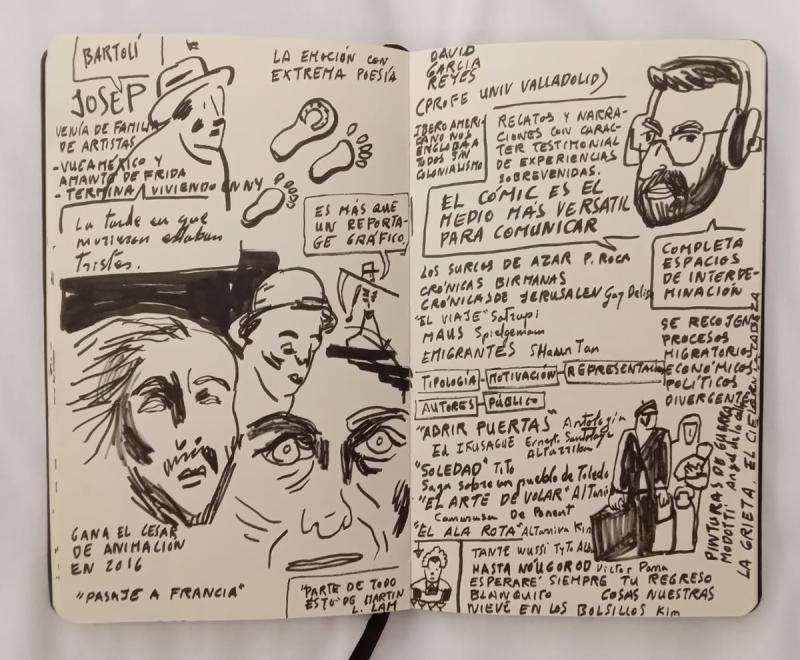 BARTOLÍ
JOSEP
VENÍA DE FAMILIA
DE ARTISTAS
- VUCAMEXICO Y
AMANTE DE FRIDA
- TERMINA VIVIENDO EN NY
La tarde en que
murieron estaban
tristes.
LA EMOCIÓN CON
EXTREMA POESÍA
ES MÁS QUE
UN REPORTA-
GE GRÁFICO
GANA EL CESAR
DE ANIMACIÓN
EN 2016
"PASAJE A FRANCIA"
"PARTE DE TODO
ESTO" DE MARTIN
L. LAM
DAVID
GARCIA
REYES
(PROFE UNIV VALLADOLID)
IBEROAMERI-
CANO NOS
ENGLOBA A
TODOS SIN
COLONIALISMO
RELATOS Y NARRA-
CIONES CON CARAC-
TER TESTIMONIAL
DE EXPERIENCIAS
SOBREVENIDAS.
EL CÓMIC ES EL
MEDIO MÁS VERSATIL
PARA COMUNICAR
COMPLETA
ESPACIOS
DE INTERDE-
MINACIÓN
LOS SURCOS DE AZAR P. ROCA
CRÓNICAS BIRMANAS
CRÓNICAS DE JERUSALEN Guy Delisle
"EL VIAJE" Satrapi
MAUS Spielgemann
EMIGRANTES Shaun Tan
SE RECOJEN
PROCESOS
MIGRATORIOS
ECONÓMICOS
POLÍTICOS
DIVERGENTE
TIPOLOGÍA - MOTIVACIÓN - REPRESENTACIÓN
AUTORES - PÚBLICO
"ABRIR PUERTAS" Antología
El IFUSAGUE Ernest. Santolaya
ALTARRIBA
"SOLEDAD" TITO
Saga sobre un pueblo de Toledo
"EL ARTE DE VOLAR" Altarriba
De Ponent
"EL ALA ROTA" Altarriva Kim
TANTE WUSSI Tyto Alba
HASTA NÓVGOROD Victor Puma
ESPERARÉ SIEMPRE TU REGRESO
BLANQUITO COSAS NUESTRAS
NIEVE EN LOS BOLSILLOS Kim
PINTURAS DE GUERRA
MODOTTI Angel de la Calle
LA GRIETA. EL CIELO EN LA CABEZA